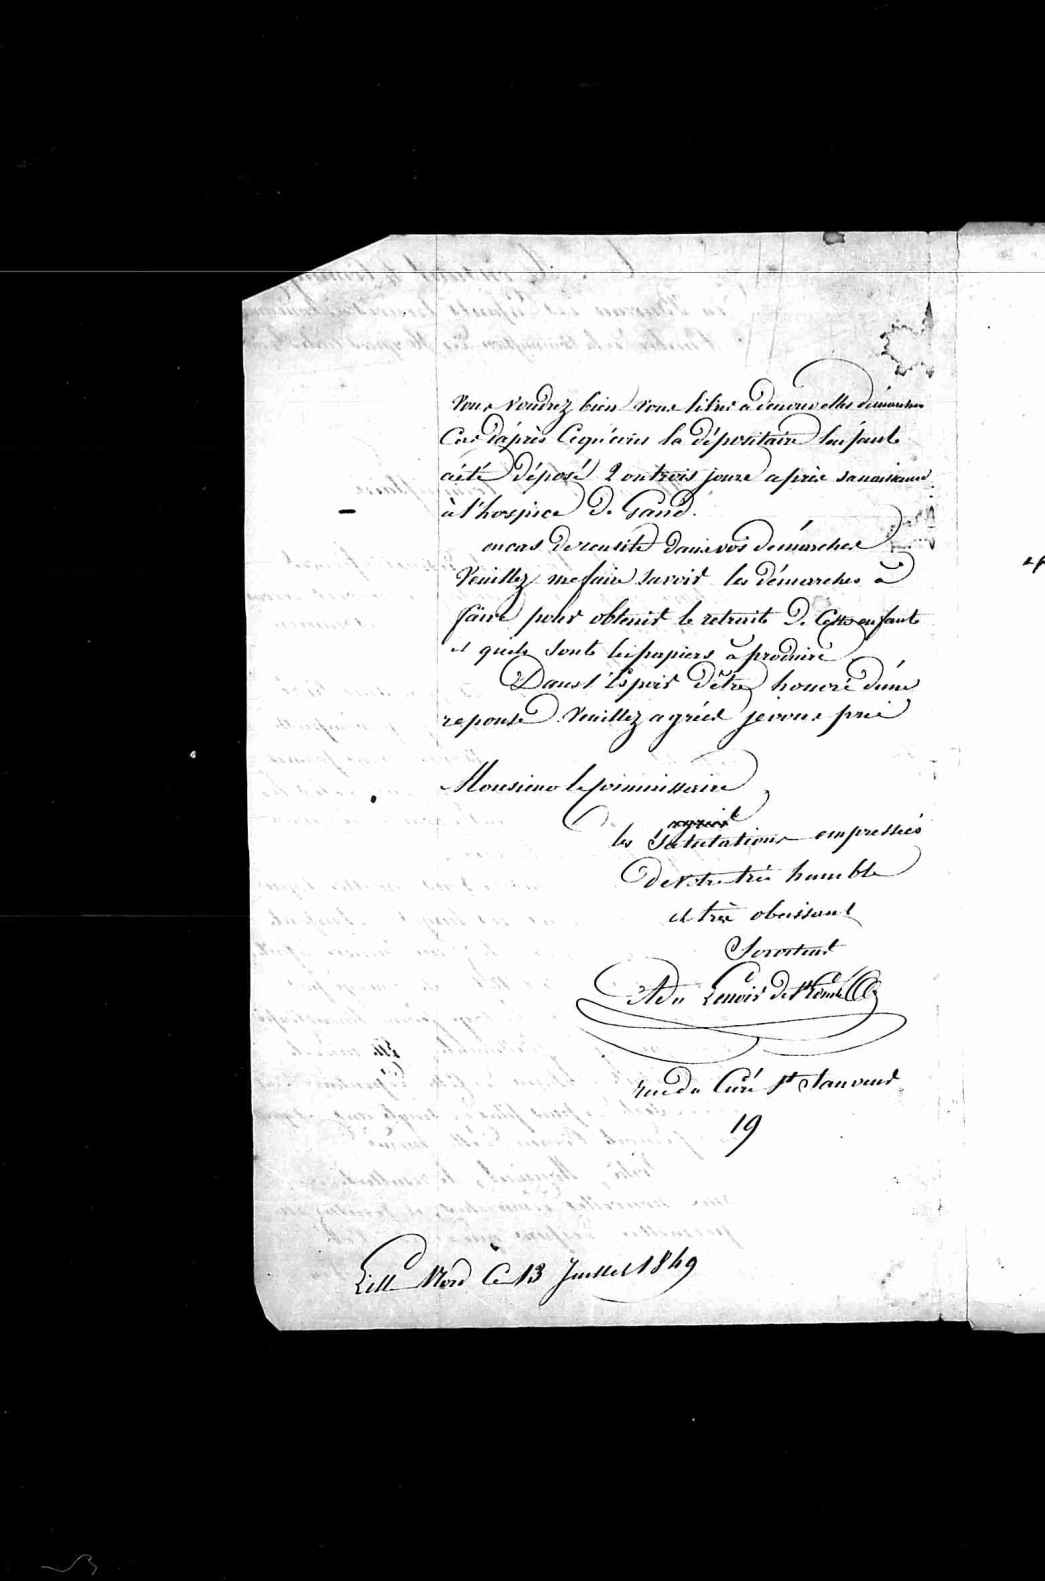 vous voudrez bien vous livrer a denouvelles démarches
Car d'après Cequ'écrit la dépositaire l'enfant
aété déposé 2 outrois jours après sanaissance
à l'hospice De Gand.
encas De reusite Dans vos Démarches
Veuillez me faire savoir les démarches à
faire pour obtenir le retrait De Cette enfant
et quels sont les papiers à produire
Dans l'Espoir d'être honoré d'une
reponse Veuillez agréer jevous prie
Monsieur le Commissaire
les Salutations empressées
De Votre très humble
et très obeissant
Serviteur
Lenoir de
rue du Curé St
19
Lille Nord Ce 13 Juillet 1849